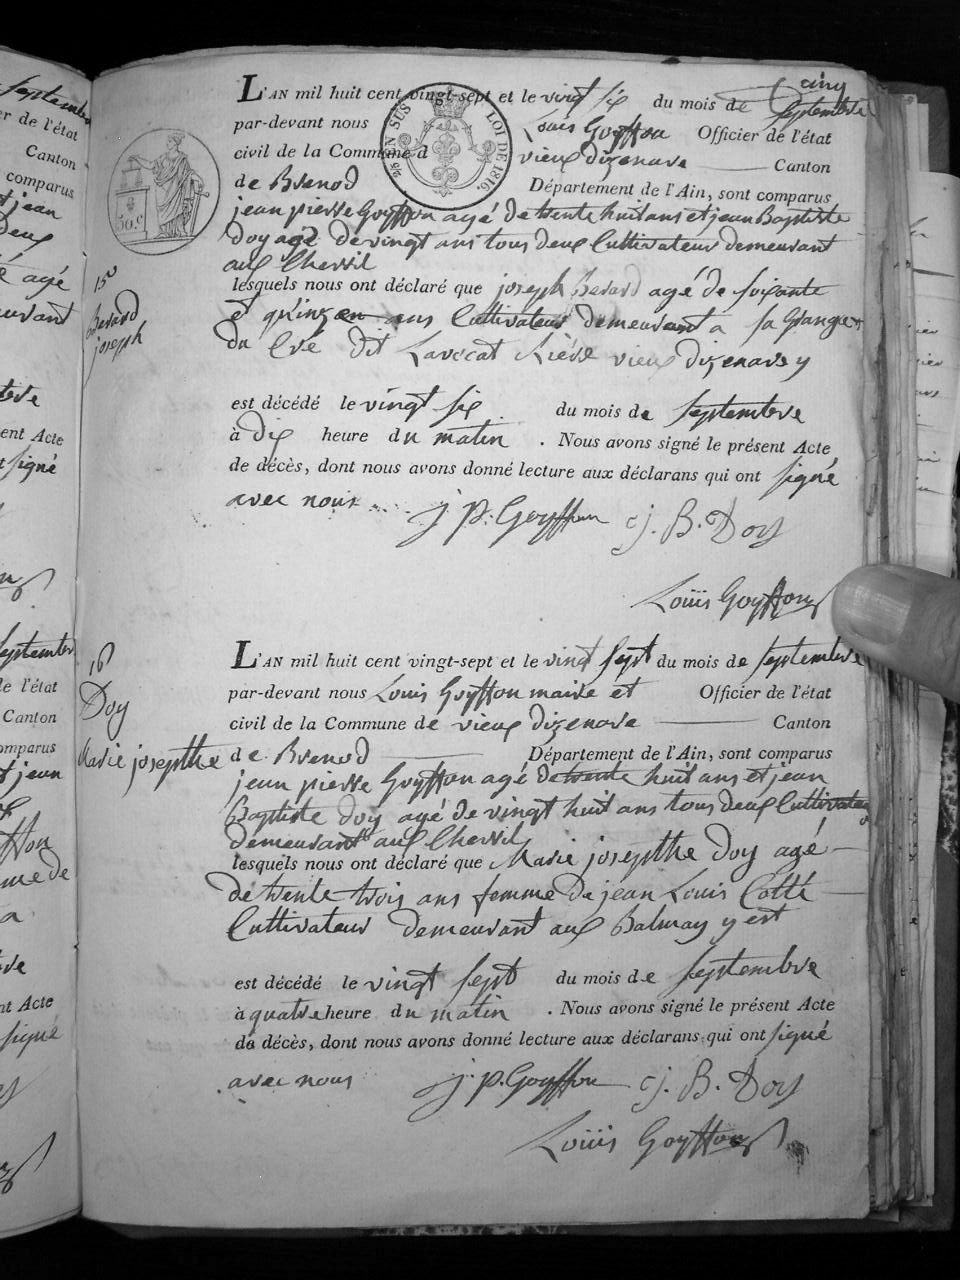 Cinq
L'AN mil huit cent vingt-sept et le vingt six du mois de Septembre
par-devant nous Louis Goyffon Officier de l'état
civil de la Commune d vieux dizenave Canton
de Brenod Département de l'Ain, sont comparus
jean pierre Goyffon agé de trente huit ans et jean Baptiste
Doy agé de vingt ans tous deux Cultivateur demeurant
aux Chevril
lesquels nous ont déclaré que joseph Berard agé de soixante
et quinze ans Cultivateur demeurant a la Grange
du Cré dit Lavocat Rière vieux dizenave y
est décédé le vingt six du mois de Septembre
à dix heure du matin . Nous avons signé le présent Acte
de décès, dont nous avons donné lecture aux déclarans qui ont signé
avec nous
j p. Goyffon j. B. Doy
Louis Goyffon
50 c.
TIMBRE EN SUS
LOI DE 1816.
15
Berard
joseph
L'AN mil huit cent vingt-sept et le vingt sept du mois de Septembre
par-devant nous Louis Goyffon maire et Officier de l'état
civil de la Commune de vieux dizenave Canton
de Brenod Département de l'Ain, sont comparus
jean pierre Goyffon agé de trente huit ans et jean
Baptiste doy agé de vingt huit ans tous deux Cultivateur
demeurant aux Chevril
lesquels nous ont déclaré que Marie josepthe Doy agé
de trente trois ans femme de jean Louis Cotté
Cultivateur demeurant aux Balmay y est
est décédé le vingt sept du mois de Septembre
à quatre heure du matin . Nous avons signé le présent Acte
de décès, dont nous avons donné lecture aux déclarans qui ont signé
avec nous
j. p. Goyffon j. B. Doy
Louis Goyffon
16
Doy
Marie josepthe